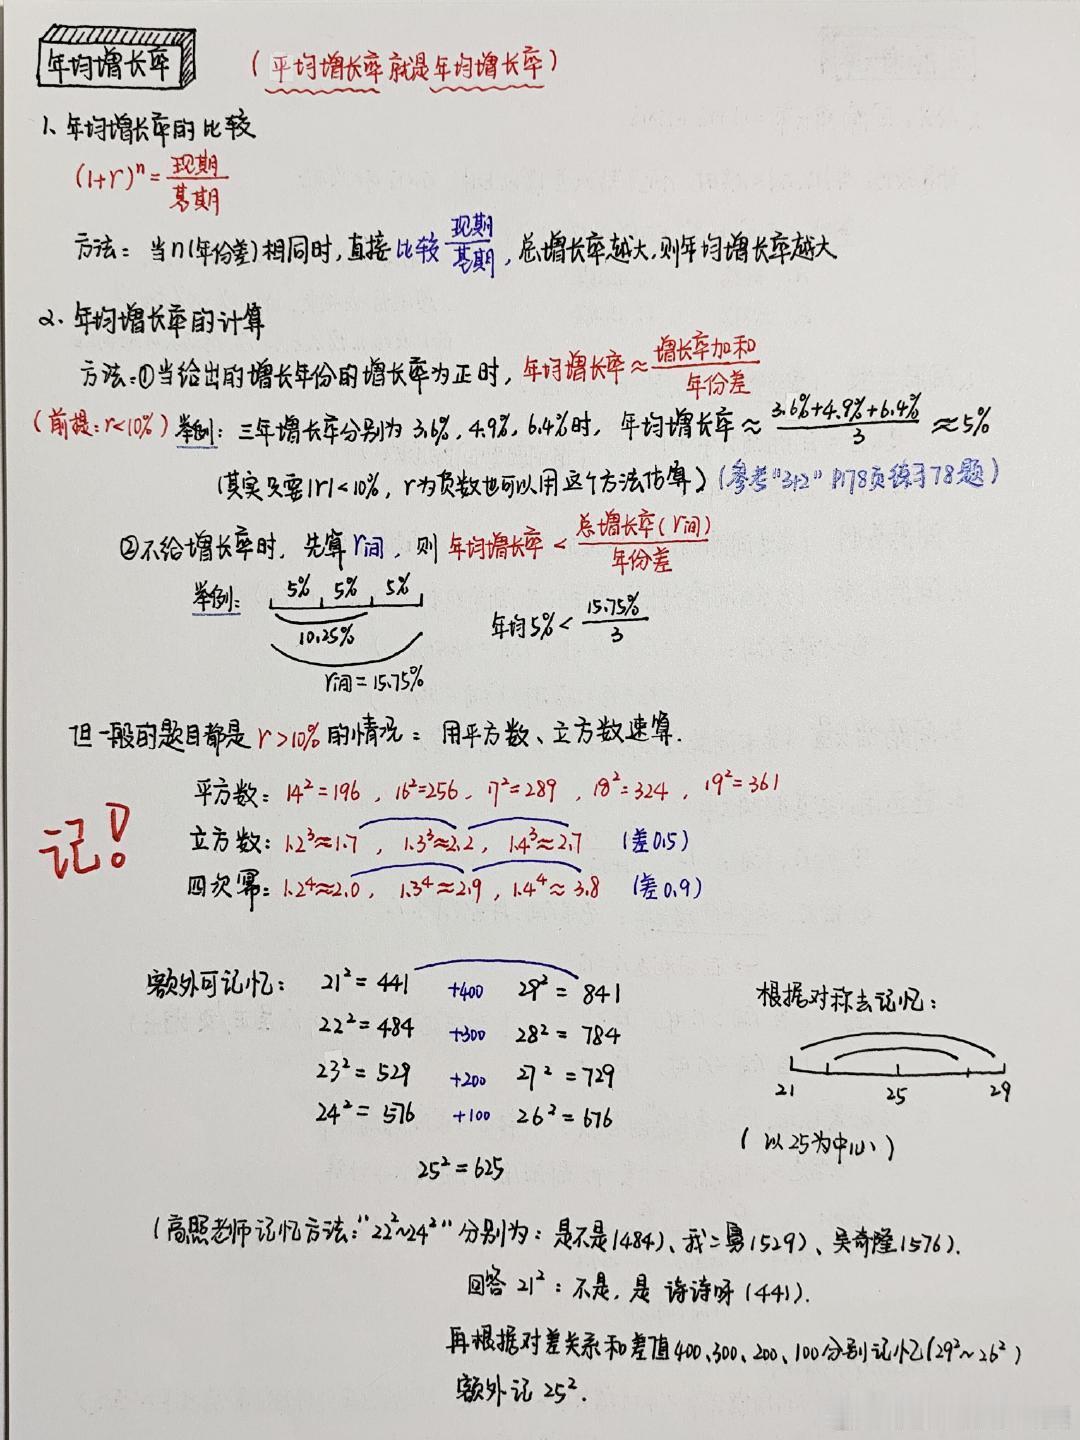 年均增长率 (平均增长率就是年均增长率)
1、年均增长率的比较
(1+r)ⁿ = 现期/基期
方法：当n(年份差)相同时,直接比较 现期/基期 , 总增长率越大,则年均增长率越大
2、年均增长率的计算
方法:①当给出的增长年份的增长率为正时，年均增长率≈ 增长率加和/年份差
(前提:r<10%) 举例：三年增长率分别为3.6%，4.9%，6.4%时，年均增长率≈ 3.6%+4.9%+6.4%/3 ≈5%
(其实只要|r|<10%，r为负数也可以用这个方法估算)(参考"3+2" P178页练习78题)
②不给增长率时，先算r间，则 年均增长率 < 总增长率(r间)/年份差
举例: 5% 5% 5%
10.25%
年均5% < 15.75%/3
r间=15.75%
但一般的题目都是r>10%的情况：用平方数、立方数速算.
记!
平方数：14²=196，16²=256，17²=289，18²=324，19²=361
立方数：1.2³≈1.7，1.3³≈2.2，1.4³≈2.7 (差0.5)
四次幂：1.2⁴≈2.0，1.3⁴≈2.9，1.4⁴≈3.8 (差0.9)
额外可记忆： 21²=441 +400 29²=841
22²=484 +300 28²=784
23²=529 +200 27²=729
24²=576 +100 26²=676
25²=625
根据对称去记忆：
21 25 29
(以25为中心)
(高照老师记忆方法："22²~24²"分别为：是不是(484)、我二舅(529)、吴奇隆(576).
回答21²：不是，是 诗诗呀(441).
再根据对差关系和差值400、300、200、100分别记忆(29²~26²)
额外记25².